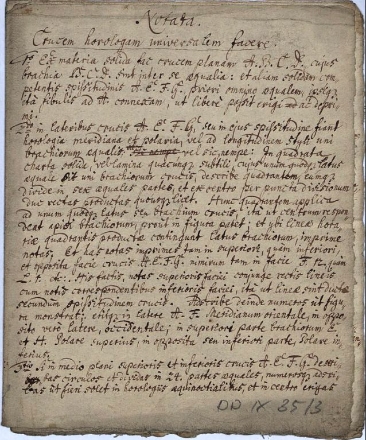 Notata.
Crucem horologam universalem facere.
Ex materia solida fac crucem planam A. B. C. D. cujus
brachia B. C. D. sint inter se æqualia: et aliam solidam com
petentis spissitudinis A. E. F. G. priori omnino æqualem,
fibulis ad A. connexam, ut libere possit erigi ac depri
mi.
in lateribus crucis A. E. F. G. seu in ejus spissitudine fiant
horologia meridiana et polaria, vel ad longitudinem styli uni
brachiorum æqualis vel sic, nempe: In quadrata
charta solida, vel lamina quacunque subtili, cujus unum quodque latus
æquale sit uni brachiorum crucis, describe quadrantem, eumque
divide in sex æquales partes, et ex centro per puncta divisionum
duc rectas productas quousque Hunc quadrantem applica
ad unum quodque latus seu brachium crucis, ita ut centrum respon
deat apici brachiorum, prout in figura patet; et ubi lineæ hora
riæ quadrantis productæ contingunt latus brachiorum, imprime
notas. Et has notas imprimes tam in superiori quam inferiori,
et opposita facie crucis A. E. F. G. nimirum tam in facie
His factis, notas superioris faciei conjunge rectis lineis
cum notis correspondentibus inferioris faciei, ita ut lineæ sint ductæ
secundum spissitudinem crucis. Ascribe deinde numeros ut figu
ra monstrat, in latere A. F. Meridianum orientale, in oppo
sito vero latere, occidentale; in superiori parte brachiorum E.
et H. Solare superius, in opposita seu inferiori parte, Solare in
ferius.
in medio plani superioris et inferioris crucis A. E. F. G. descri
bas circulos et dividas in 24. partes æquales, numerosque adscri
bas ut fieri solet in horologiis æquinoctialibus, et in centro erigas
DD IX 85/3